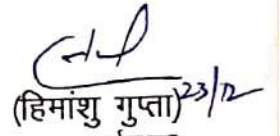 (हिमांशु गुप्ता) 23/12